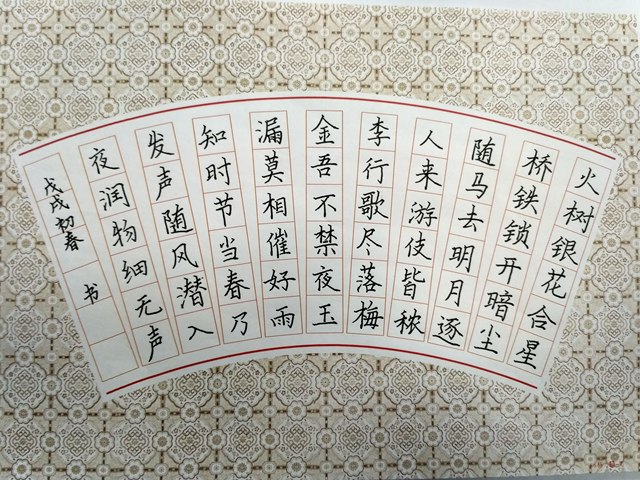 火树银花合星
桥铁锁开暗尘
随马去明月逐
人来游伎皆秾
李行歌尽落梅
金吾不禁夜王
漏莫相催好雨
知时节当春乃
发声随风潜入
夜润物细无声
戊戌初春 书